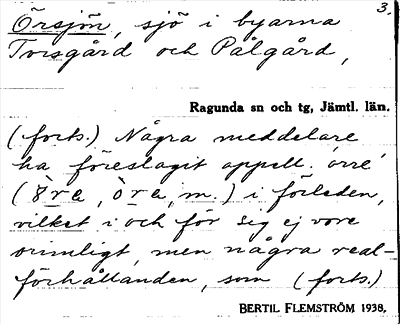 3.
Örsjön, sjö i byarna
Torsgård och Pålgård,
Ragunda sn och tg, Jämtl. län.
(forts.) Några meddelare
ha föreslagit appell. 'orre'
i förleden,
vilket i och för sig ej vore
orimligt, men några real-
förhållanden, som (forts.)
BERTIL FLEMSTRÖM 1938.